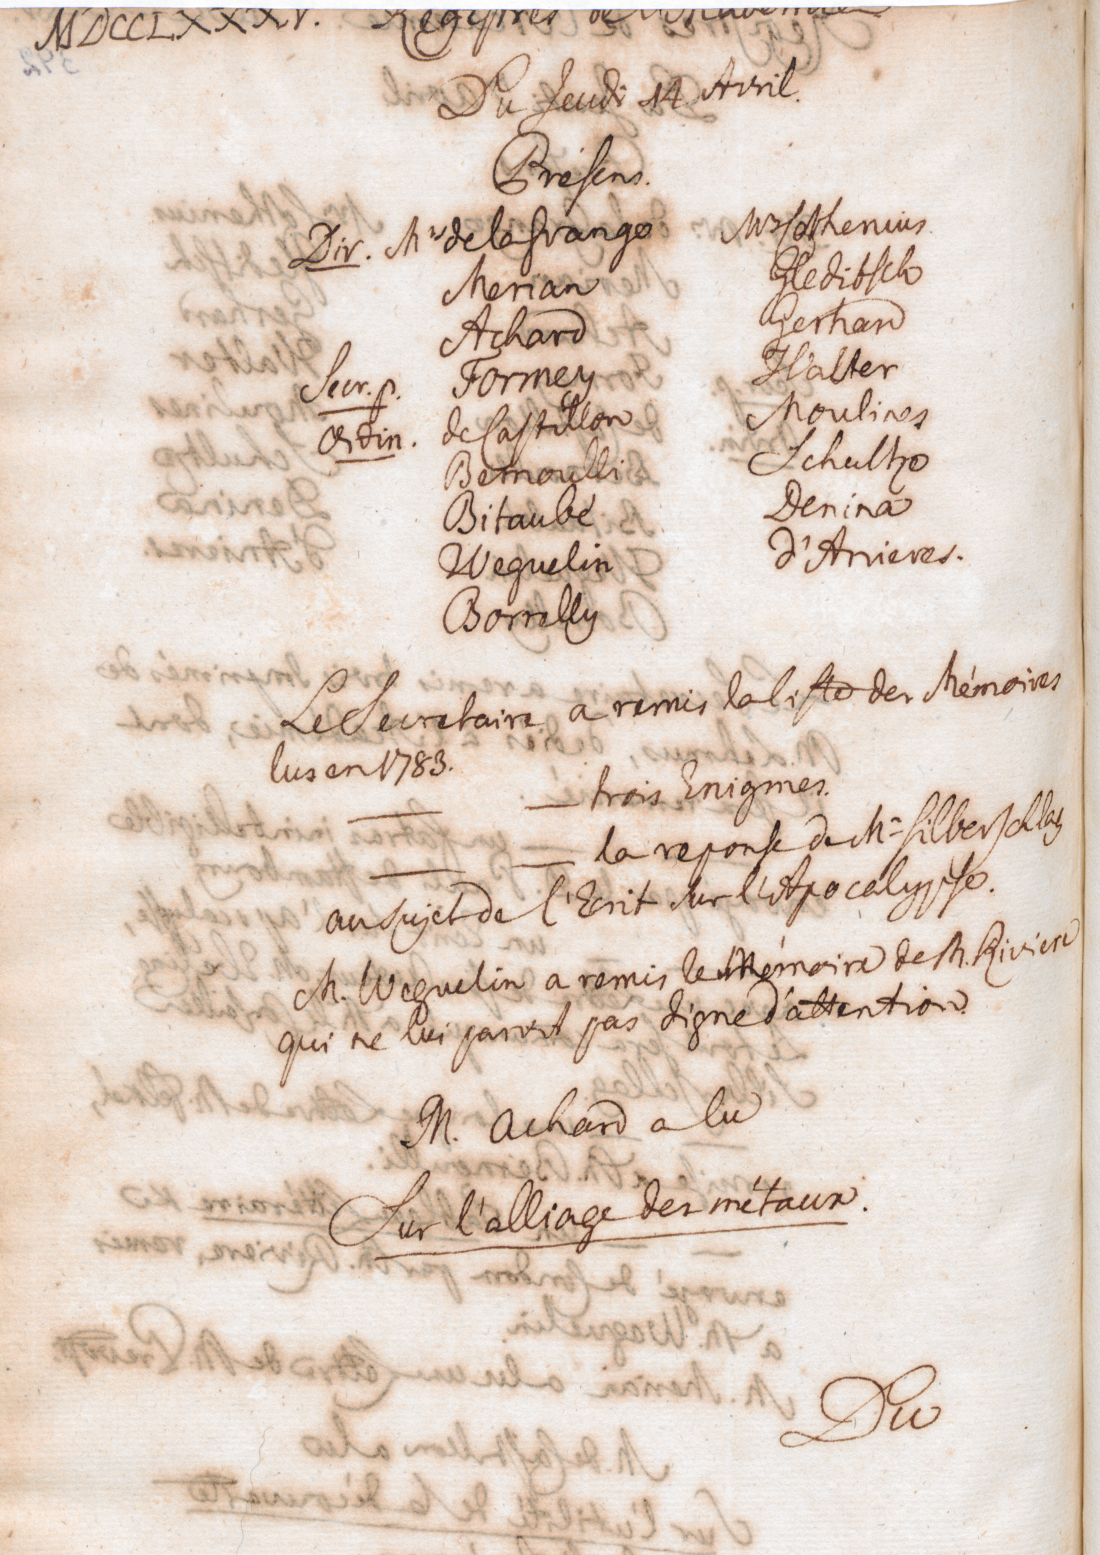 MDCCLXXXV. Registres de l'Academie
Du Jeudi 14 Avril.
Présens.
Div. Mrs de la Grange
Merian
Achard
Secr. p. Formey
Ordin. de Castillon
Bernoulli
Bitaubé
Weguelin
Borrelly
Mrs Cothenius
Gleditsch
Gerhard
Walter
Moulines
Schultze
Denina
d'Anieres.
Le Secretaire a remis la liste des Mémoires
lus en 1783.
— — trois Enigmes.
— — la reponse de Mr Silberschlag
au sujet de l'Ecrit sur l'Apocalypse.
M. Weguelin a remis le Mémoire de M. Riviere
qui ne lui paroit pas digne d'attention.
M. Achard a lu
Sur l'alliage des métaux.
Du